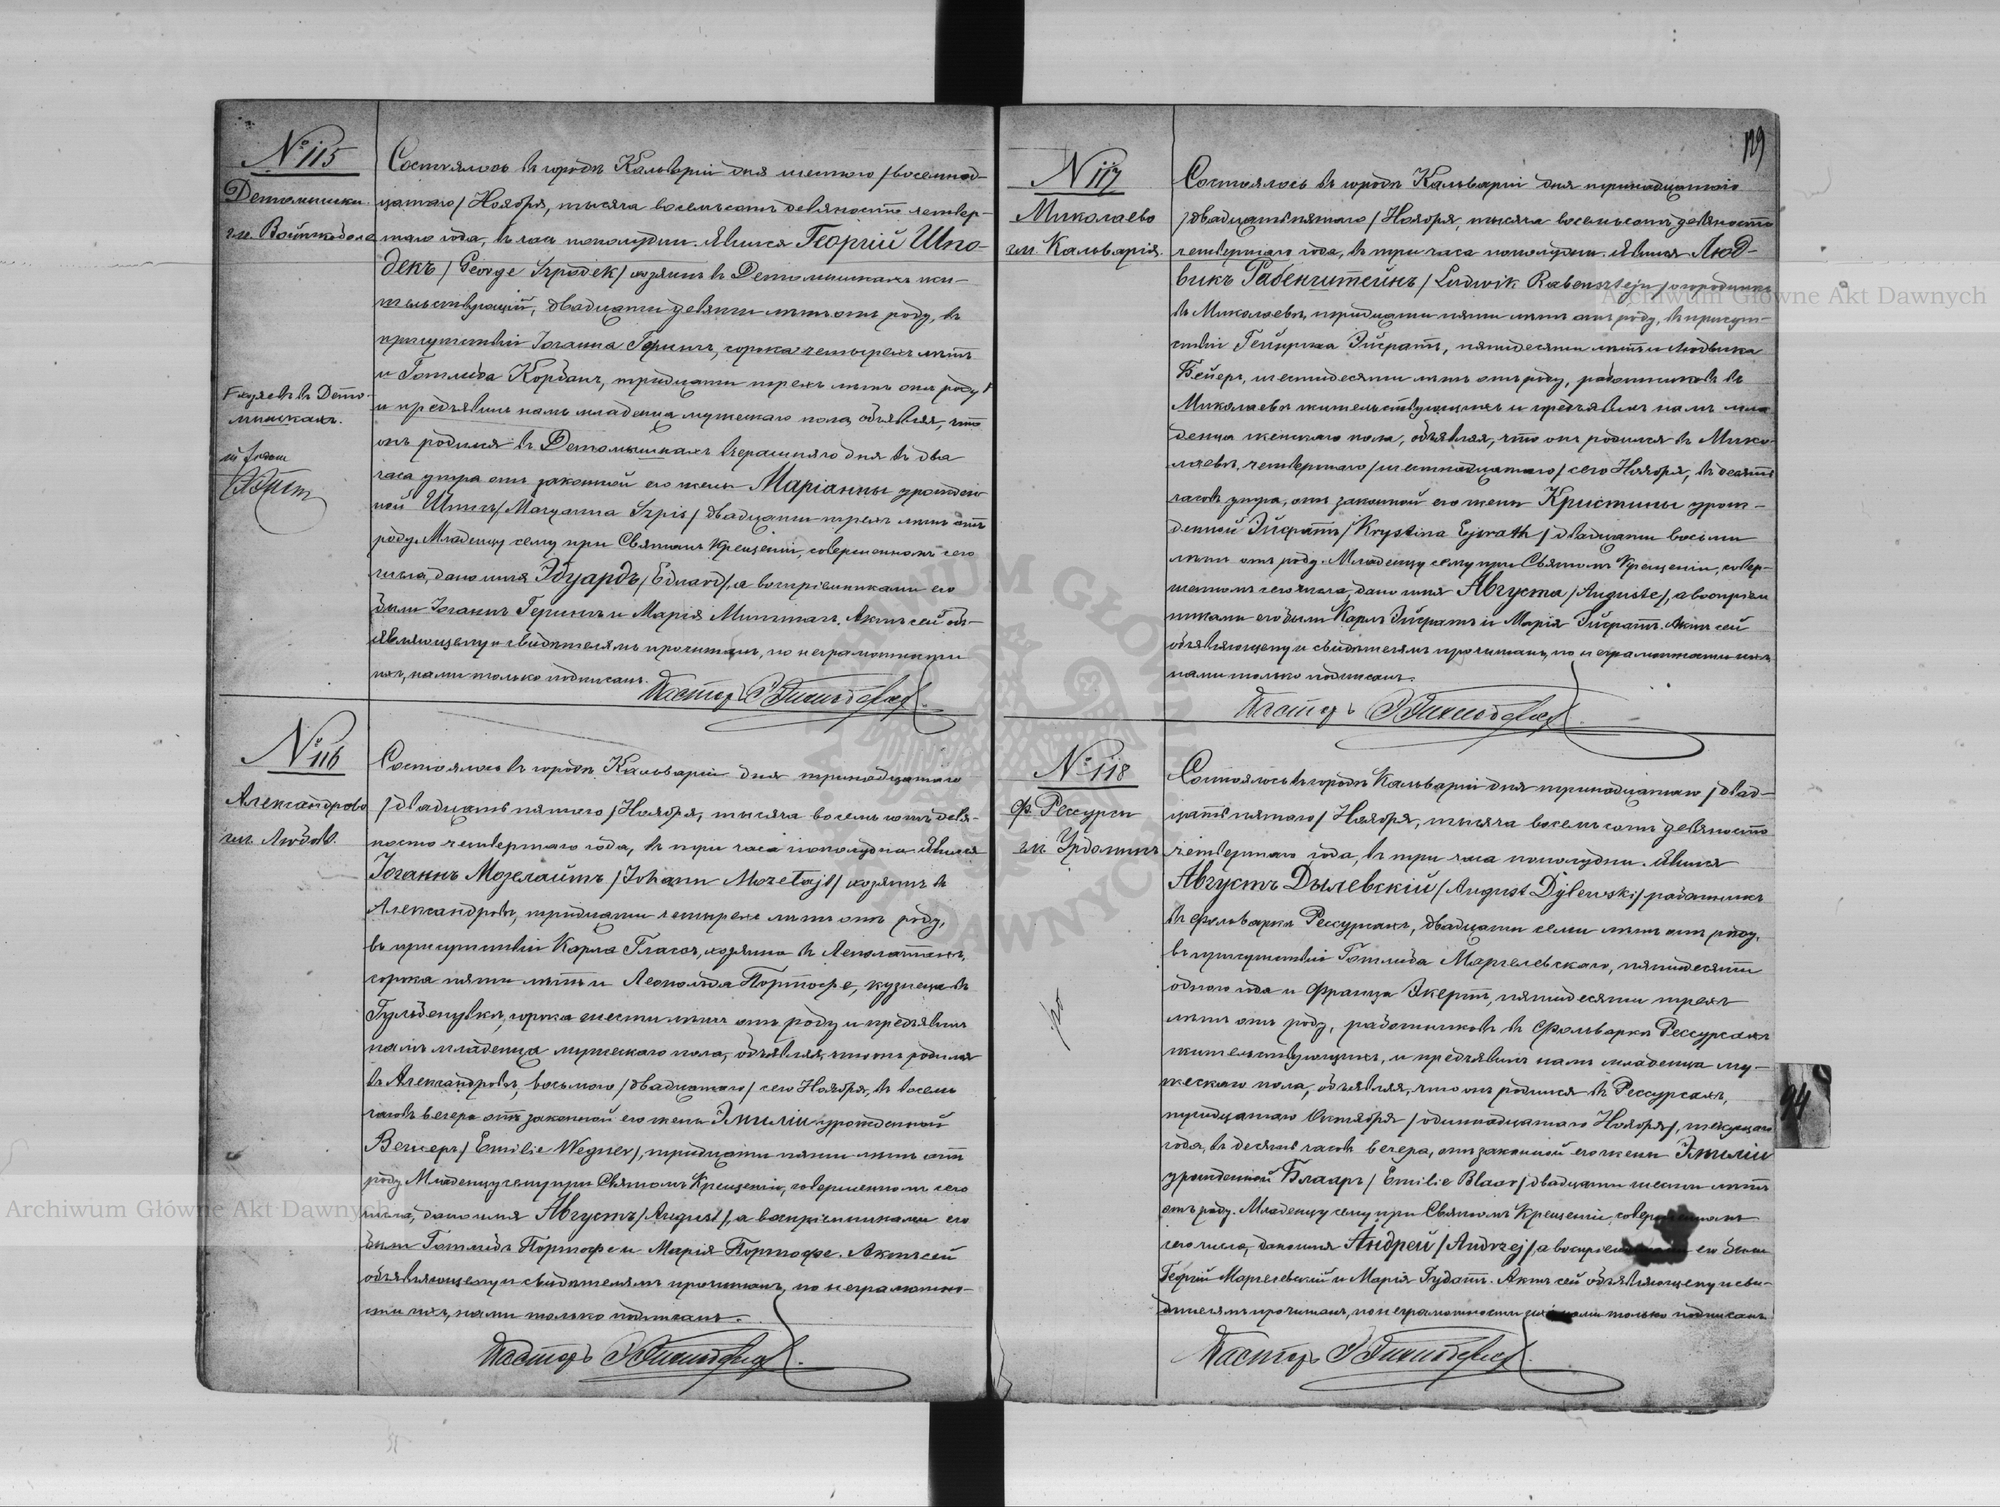 № 115
Детомишки
гм. Войткобола
Состоялось въ городѣ Кальваріи дня шестого /восемнад-
цатаго/ Ноября, тысяча восемьсотъ девяносто четвер-
таго года, въ часъ пополудни. Явился Георгій Шпо-
декъ /George Szpodek/ хозяинъ въ Детомишкахъ жи-
тельствующій, двадцати девяти лѣтъ отъ роду, въ
присутствіи Іоганна Герингъ, сорока четырехъ лѣтъ
и Готлиба Корданъ, тридцати трехъ лѣтъ отъ роду
и предъявилъ намъ младенца мужескаго пола, объявляя, что
онъ родился въ Детомишкахъ вчерашняго дня въ два
часа утра отъ законной его жены Маріанны урожден-
ной Шписъ /Maryanna Szpis/ двадцати трехъ лѣтъ отъ
роду. Младенцу сему при Святомъ Крещеніи, совершенномъ сего
числа, дано имя Эдуардъ /Eduard/, а воспріемниками его
были Іоганнъ Герингъ и Марія Миттагъ. Актъ сей объ-
являющему и свидѣтелямъ прочитанъ, по неграмотности
ихъ, нами только подписанъ.
Пасторъ
№ 116
Александрово
гм. Любовъ.
Состоялось въ городѣ Кальваріи дня тринадцатаго
/двадцать пятаго/ Ноября, тысяча восемьсотъ девя-
носто четвертаго года, въ три часа пополудни. Явился
Іоганнъ Мозелайтъ /Johann Mozelajt/ хозяинъ въ
Александровѣ, тридцати четырехъ лѣтъ отъ роду,
въ присутствіи Карла Гласъ, хозяина въ
сорока пяти лѣтъ и Леопольда Портофе, кузнеца въ
сорока шести лѣтъ отъ роду и предъявилъ
намъ младенца мужескаго пола, объявляя, что онъ родился
въ Александровѣ, восьмого /двадцатаго/ сего Ноября, въ восемь
часовъ вечера отъ законной его жены Эмиліи урожденной
Вегнеръ /Emilie Wegner/, тридцати пяти лѣтъ отъ
роду. Младенцу сему при Святомъ Крещеніи, совершенномъ сего
числа, дано имя Августъ /August/, а воспріемниками его
были Готлибъ Портофе и Марія Портофе. Актъ сей
объявляющему и свидѣтелямъ прочитанъ, по неграмотно-
сти ихъ, нами только подписанъ.
Пасторъ
129
№ 117
Миколаево
гм. Кальварія.
Состоялось въ городѣ Кальваріи дня тринадцатаго
/двадцать пятаго/ Ноября, тысяча восемьсотъ девяносто
четвертаго года, въ три часа пополудни. Явился Люд-
викъ Рабенштейнъ /Ludwik Rabensztejn/ огородникъ
въ Миколаевѣ, тридцати пяти лѣтъ отъ роду, въ присут-
ствіи Гейнриха Эйсратъ, пятидесяти лѣтъ и Людвика
Бейеръ, шестидесяти лѣтъ отъ роду, работниковъ въ
Миколаевѣ жительствующихъ и предъявилъ намъ мла-
денца женскаго пола, объявляя, что онъ родился въ Мико-
лаевѣ, четвертаго /шестнадцатаго/ сего Ноября, въ десять
часовъ утра, отъ законной его жены Кристины урож-
денной Эйсратъ /Krystina Ejsrath/ двадцати восьми
лѣтъ отъ роду. Младенцу сему при Святомъ Крещеніи, совер-
шенномъ сего числа, дано имя Августа /Auguste/, а воспріем-
никами его были Карлъ Эйсратъ и Марія Эйсратъ. Актъ сей
объявляющему и свидѣтелямъ прочитанъ, по неграмотности ихъ,
нами только подписанъ.
Пасторъ
№ 118
ф. Рессурсы
гм. Урдоминъ
Состоялось въ городѣ Кальваріи дня тринадцатаго /двад-
цать пятаго/ Ноября, тысяча восемьсотъ девяносто
четвертаго года, въ три часа пополудни. Явился
Августъ Дылевскій /August Dylewski/ работникъ
въ фольваркѣ Рессурсахъ, двадцати семи лѣтъ отъ роду,
въ присутствіи Готлиба Маргелевскаго, пятидесяти
одного года и Франца Экертъ, пятидесяти трехъ
лѣтъ отъ роду, работниковъ въ фольваркѣ Рессурсахъ
жительствующихъ, и предъявилъ намъ младенца му-
жескаго пола, объявляя, что онъ родился въ Рессурсахъ,
тридцатаго Октября /одиннадцатаго Ноября/, текущаго
года, въ десять часовъ вечера, отъ законной его жены Эмиліи
урожденной Блааръ /Emilie Blaar/ двадцати шести лѣтъ
отъ роду. Младенцу сему при Святомъ Крещеніи, совершенномъ
сего числа, дано имя Андрей /Andrzej/ а воспріемниками его были
Георгій Маргелевскій и Марія Гудатъ. Актъ сей объявляющему и сви-
дѣтелямъ прочитанъ, по неграмотности ихъ нами только подписанъ
Пасторъ
94
Archiwum Główne Akt Dawnych
Archiwum Główne Akt Dawnych
ARCHIWUM GŁÓWNE AKT DAWNYCH